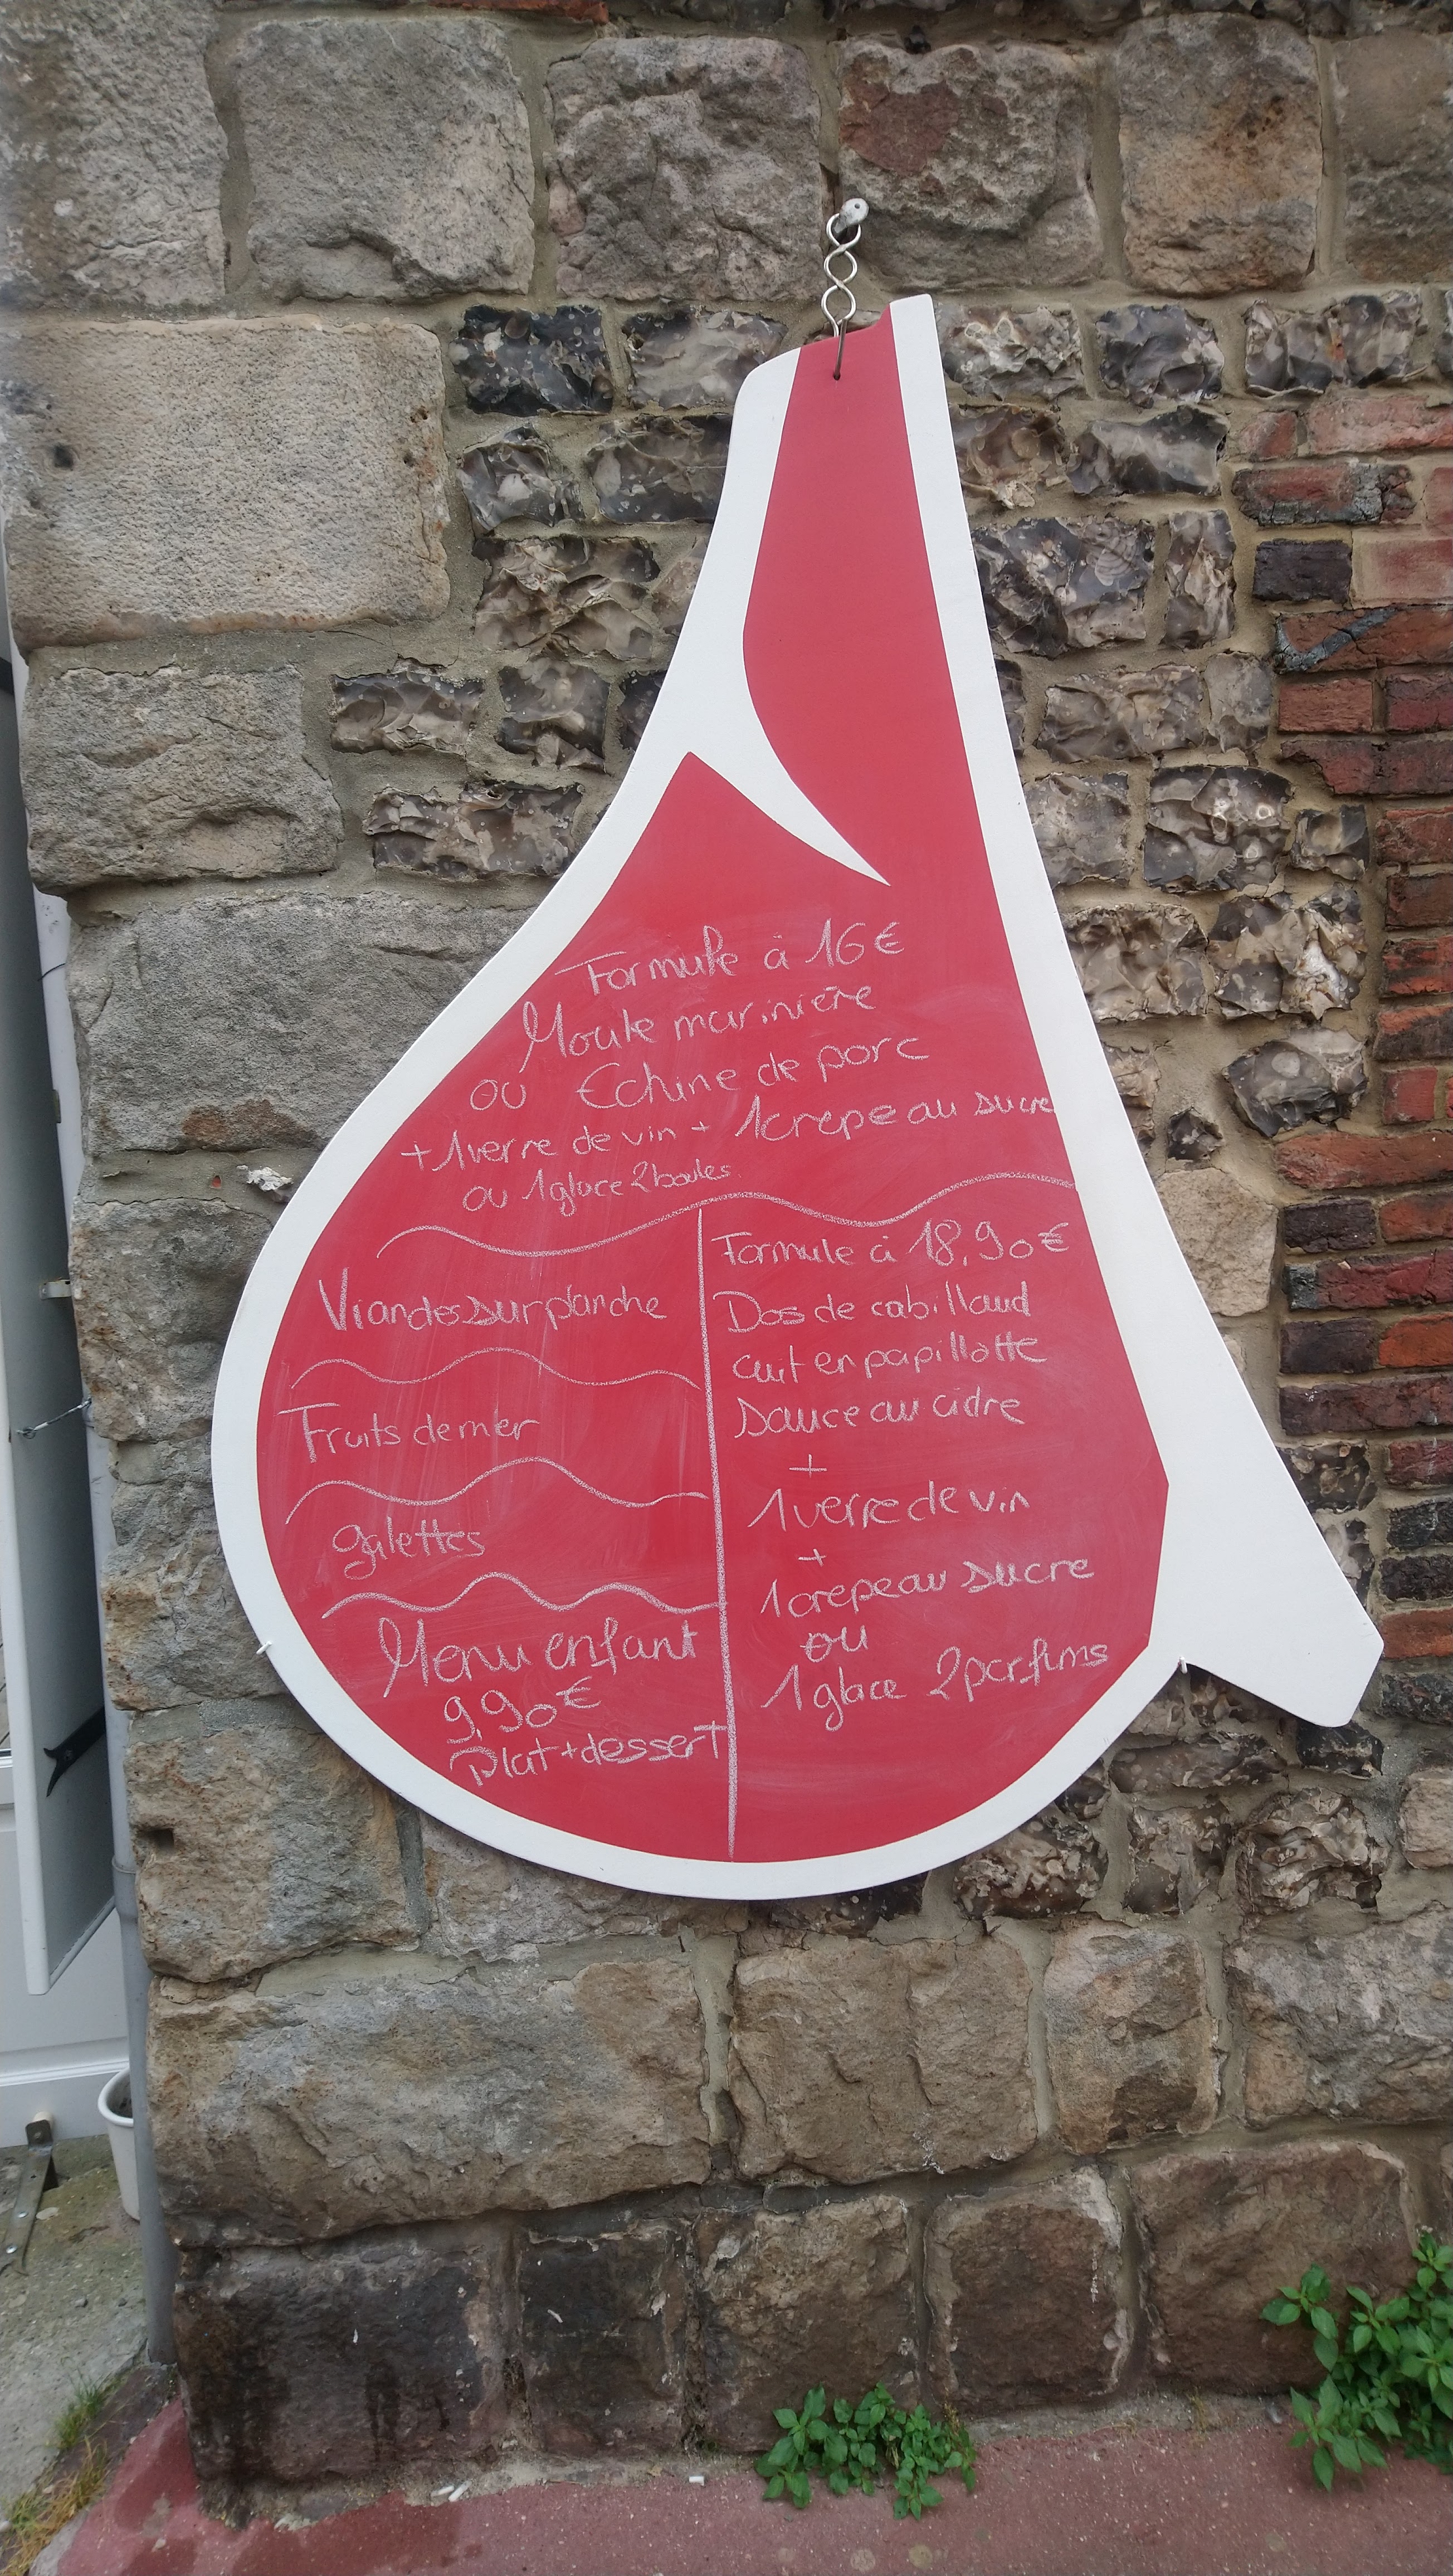 Formule à 16€
Moule marinière
ou Echine de porc
+ 1 verre de vin + 1 crepe au sucre
ou 1 glace 2 boules
Viandes sur planche
Fruits de mer
galettes
Menu enfant
9,90€
Plat + dessert
Formule à 18,90€
Dos de cabillaud
cuit en papillotte
Sauce au cidre
+
1 verre de vin
+
1 crepe au sucre
ou
1 glace 2 parfums